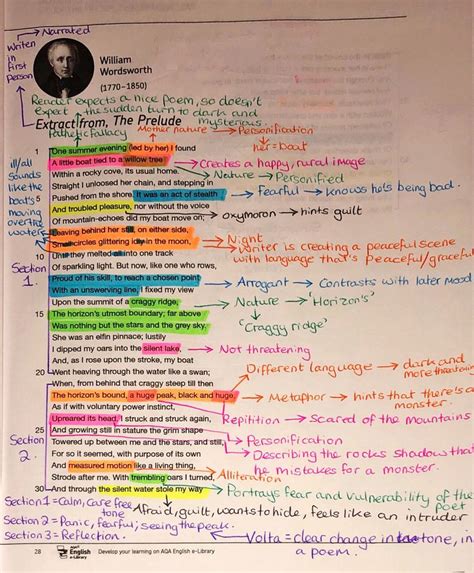 Narrated
Writen
in
first
person
William
Wordsworth
(1770–1850)
Reader expects a nice poem, so doesn't
expect the sudden turn to dark and
mysterious.
Extract from, The Prelude
Pathetic fallacy
Mother nature → Personification
her = boat
1 One summer evening (led by her) I found
A little boat tied to a willow tree
Creates a happy, rural image
Within a rocky cove, its usual home.
Nature → Personified
Straight I unloosed her chain, and stepping in
5 Pushed from the shore. It was an act of stealth
Fearful → Knows he's being bad.
And troubled pleasure, nor without the voice
oxymoron → hints guilt
Of mountain-echoes did my boat move on;
Leaving behind her still, on either side,
Night
Small circles glittering idly in the moon,
Writer is creating a peaceful scene
with language that's peaceful/graceful
ill/all
sounds
like the
boat's
moving
over the
water
10 Until they melted all into one track
Of sparkling light. But now, like one who rows,
Section
1.
Proud of his skill, to reach a chosen point
Arrogant → Contrasts with later mood
With an unswerving line, I fixed my view
Upon the summit of a craggy ridge,
Nature → 'Horizon's'
15 The horizon's utmost boundary; far above
'Craggy ridge'
Was nothing but the stars and the grey sky.
She was an elfin pinnace; lustily
I dipped my oars into the silent lake,
Not threatening
And, as I rose upon the stroke, my boat
20 Went heaving through the water like a swan;
Different language → dark and
more threatening
When, from behind that craggy steep till then
The horizon's bound, a huge peak, black and huge,
Metaphor → hints that there's a
monster.
As if with voluntary power instinct,
Upreared its head. I struck and struck again,
Repitition → Scared of the mountains
25 And growing still in stature the grim shape
Personification
Section
2.
Towered up between me and the stars, and still,
Describing the rocks shadow that
he mistakes for a monster.
For so it seemed, with purpose of its own
And measured motion like a living thing,
Strode after me. With trembling oars I turned,
Alliteration
30 And through the silent water stole my way
Portrays fear and vulnerability of the
poet
Afraid, guilt, wants to hide, feels like an intruder
Section 1 = Calm, care free
tone
Section 2 = Panic, fearful; seeing the peak.
Section 3 = Reflection.
Volta = clear change in tone, in
a poem.
28 AQA English e-Library Develop your learning on AQA English e-Library